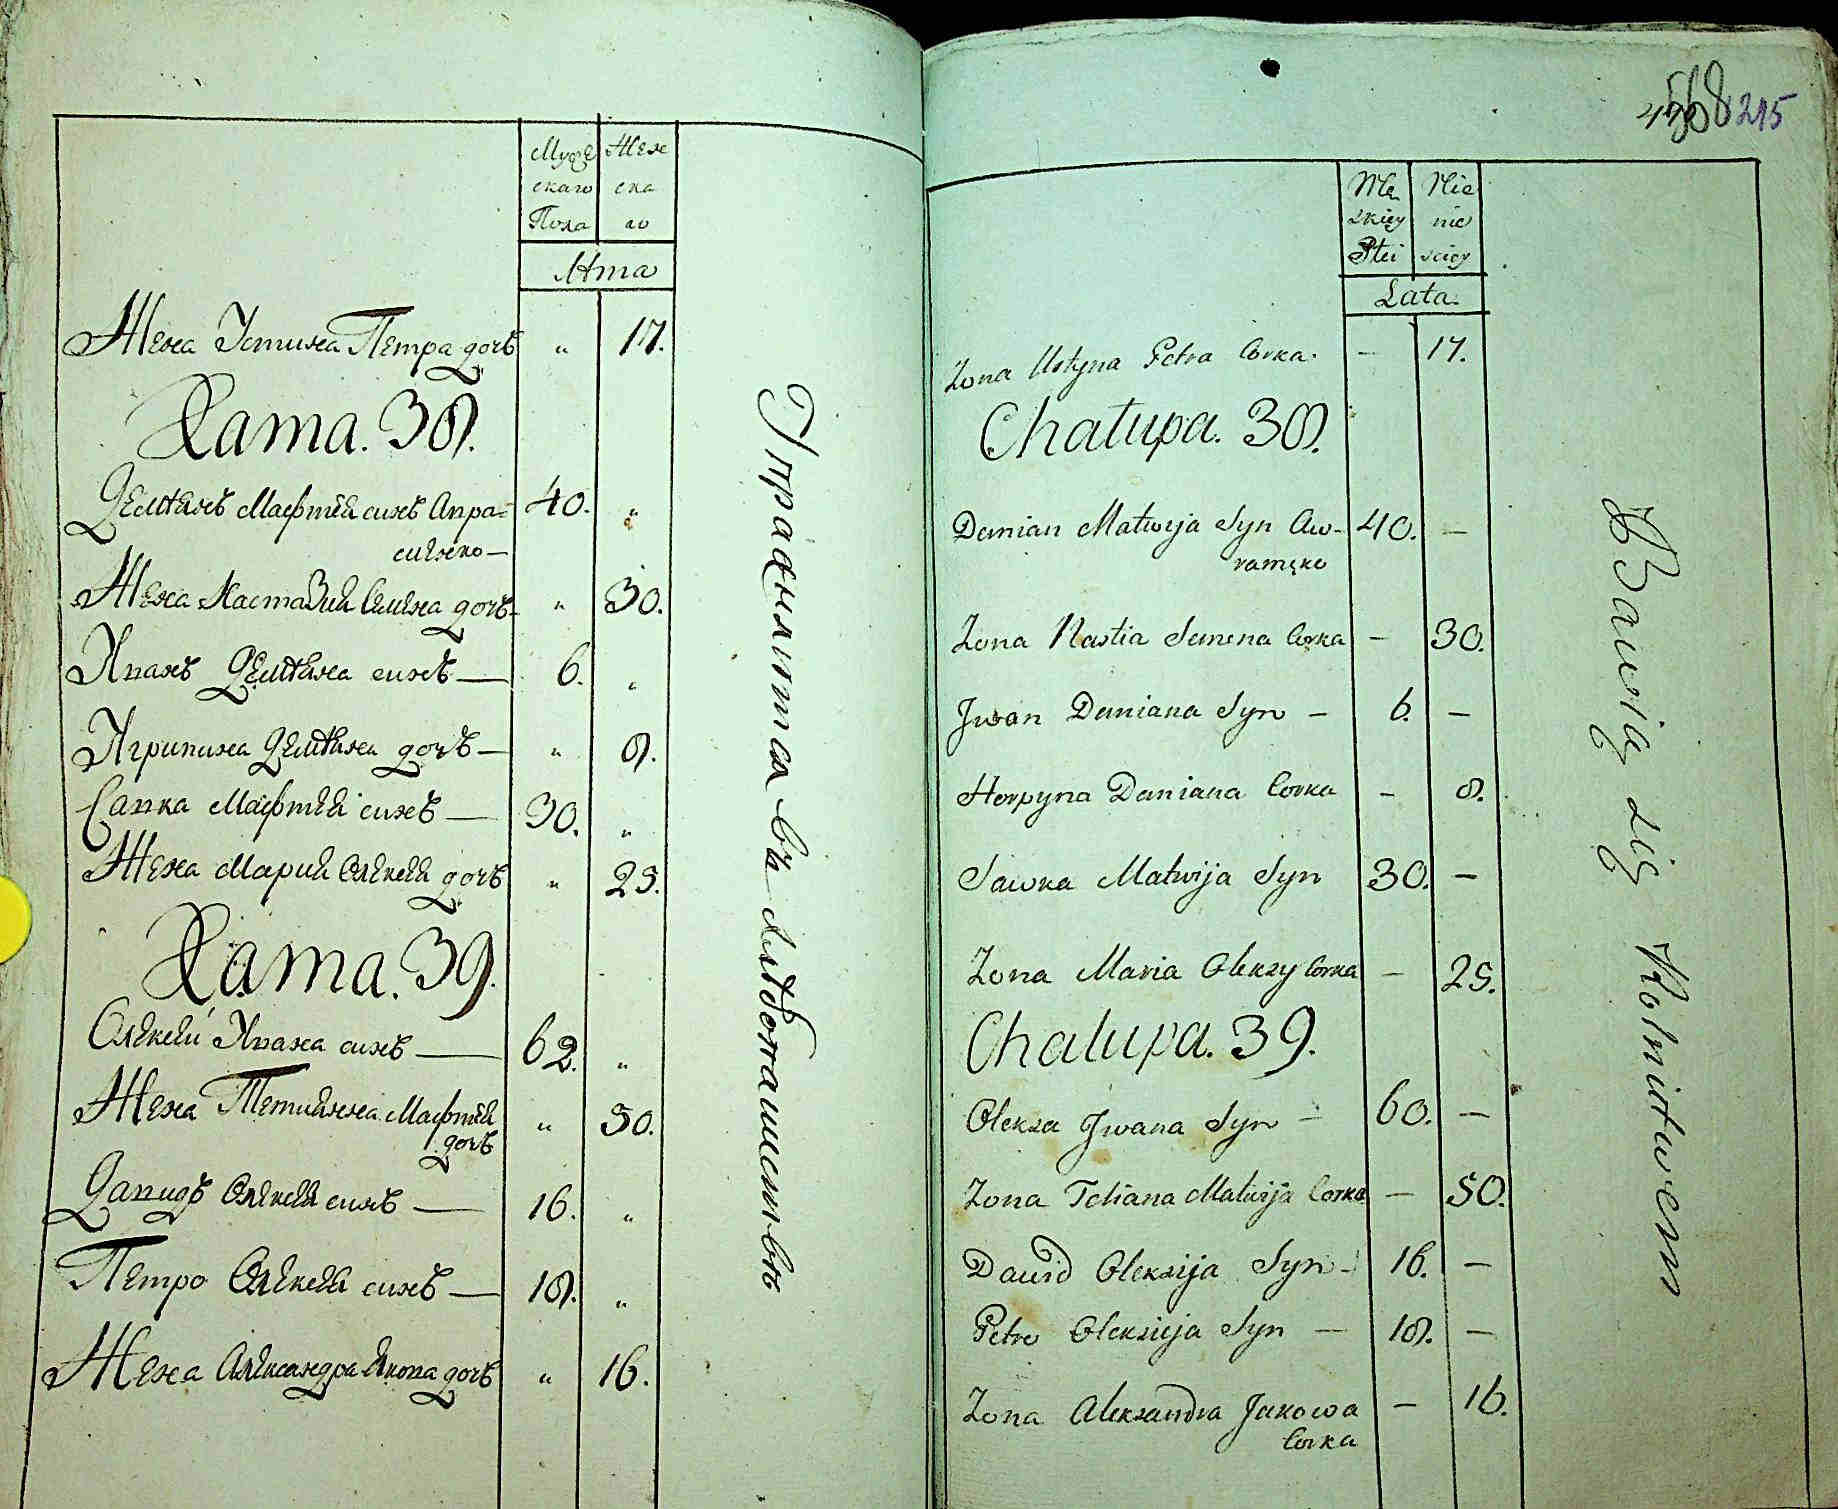 Муже Жен
скаго ска
Пола го
Лѣта
Жена Устина Петра дочь " 17.
Хата. 38.
Демѣянъ Матфѣй синъ Авра= 40. "
менко —
Жена Настазия Семена дочь " 30.
Иванъ Демѣяна синъ — 6. "
Агрипина Демѣяна дочъ — " 8.
Савка Матфѣй синъ — 30. "
Жена Мария Олексѣй дочъ " 25.
Хата. 39.
Олексѣй Ивана синъ — 62. "
Жена Тетиянна Матфѣй " 50.
дочъ
Давидъ Олексѣя синъ — 16. "
Петро Олексѣя синъ — 18. "
Жена Александра Якова дочъ " 16.
Упражняются въ хлѣбопашествѣ
568 215
Mę Nie
skiey wie
Płci sciey
Lata.
Zona Ustyna Petra Corka. — 17.
Chałupa. 38.
Demian Matwija Syn Aw- 40. —
ramęko
Zona Nastia Semena Corka — 30.
Jwan Demiana Syn — 6. —
Horpyna Demiana Corka — 8.
Sawka Matwija Syn 30. —
Zona Maria Olexy Corka — 25.
Chalupa. 39.
Olexa Jwana Syn — 60. —
Zona Tetiana Matwija Corka — 50.
Dawid Olexija Syn — 16. —
Petro Olexija Syn — 18. —
Zona Alexandra Jakowa — 16.
Corka
Bawią się Rolnictwem